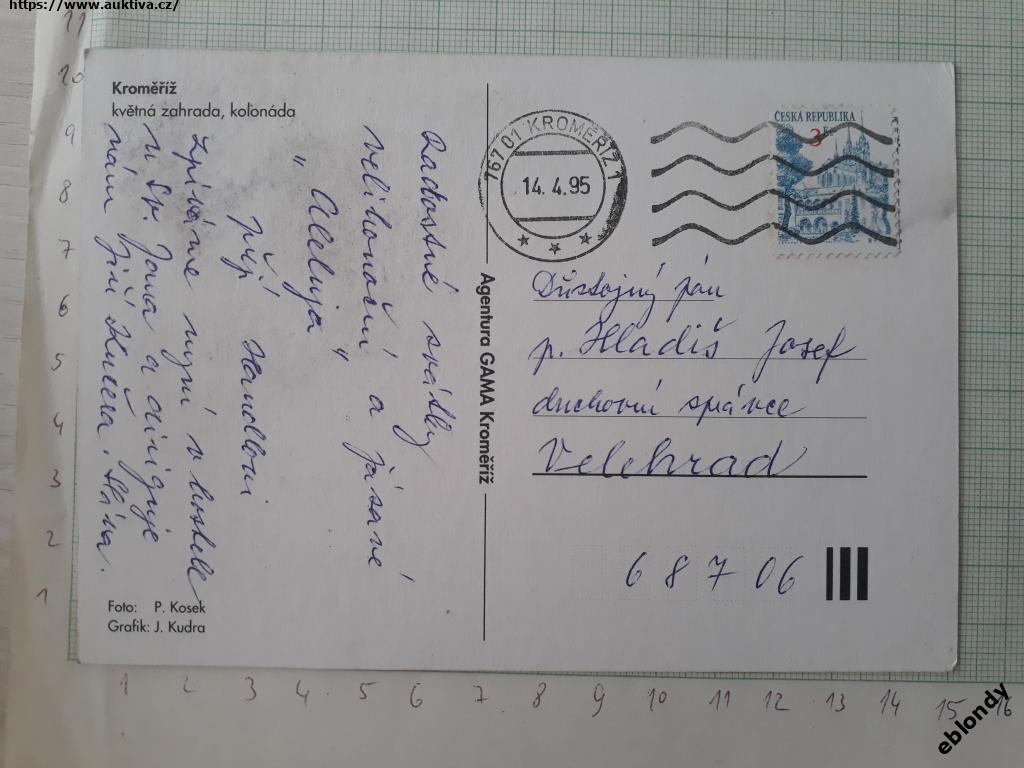 https://www.auktiva.cz/
Kroměříž
květná zahrada, kolonáda
Radostné svátky
velikonoční a jásavé
"Aleluja"
přejí Handlovi
Zpíváme nyní v kostele
u Sv. Jana a diriguje
nám Jiří Kučera. Sláva.
Foto: P. Kosek
Grafik: J. Kudra
Agentura GAMA Kroměříž
767 01 KROMĚŘÍŽ 1
14. 4. 95
ČESKÁ REPUBLIKA
3 Kč
Důstojný pán
p. Hladiš Josef
duchovní správce
Velehrad
687 06
11
10
9
8
7
6
5
4
3
2
1
1 2 3 4 5 6 7 8 9 10 11 12 13 14 15 16
eblondy